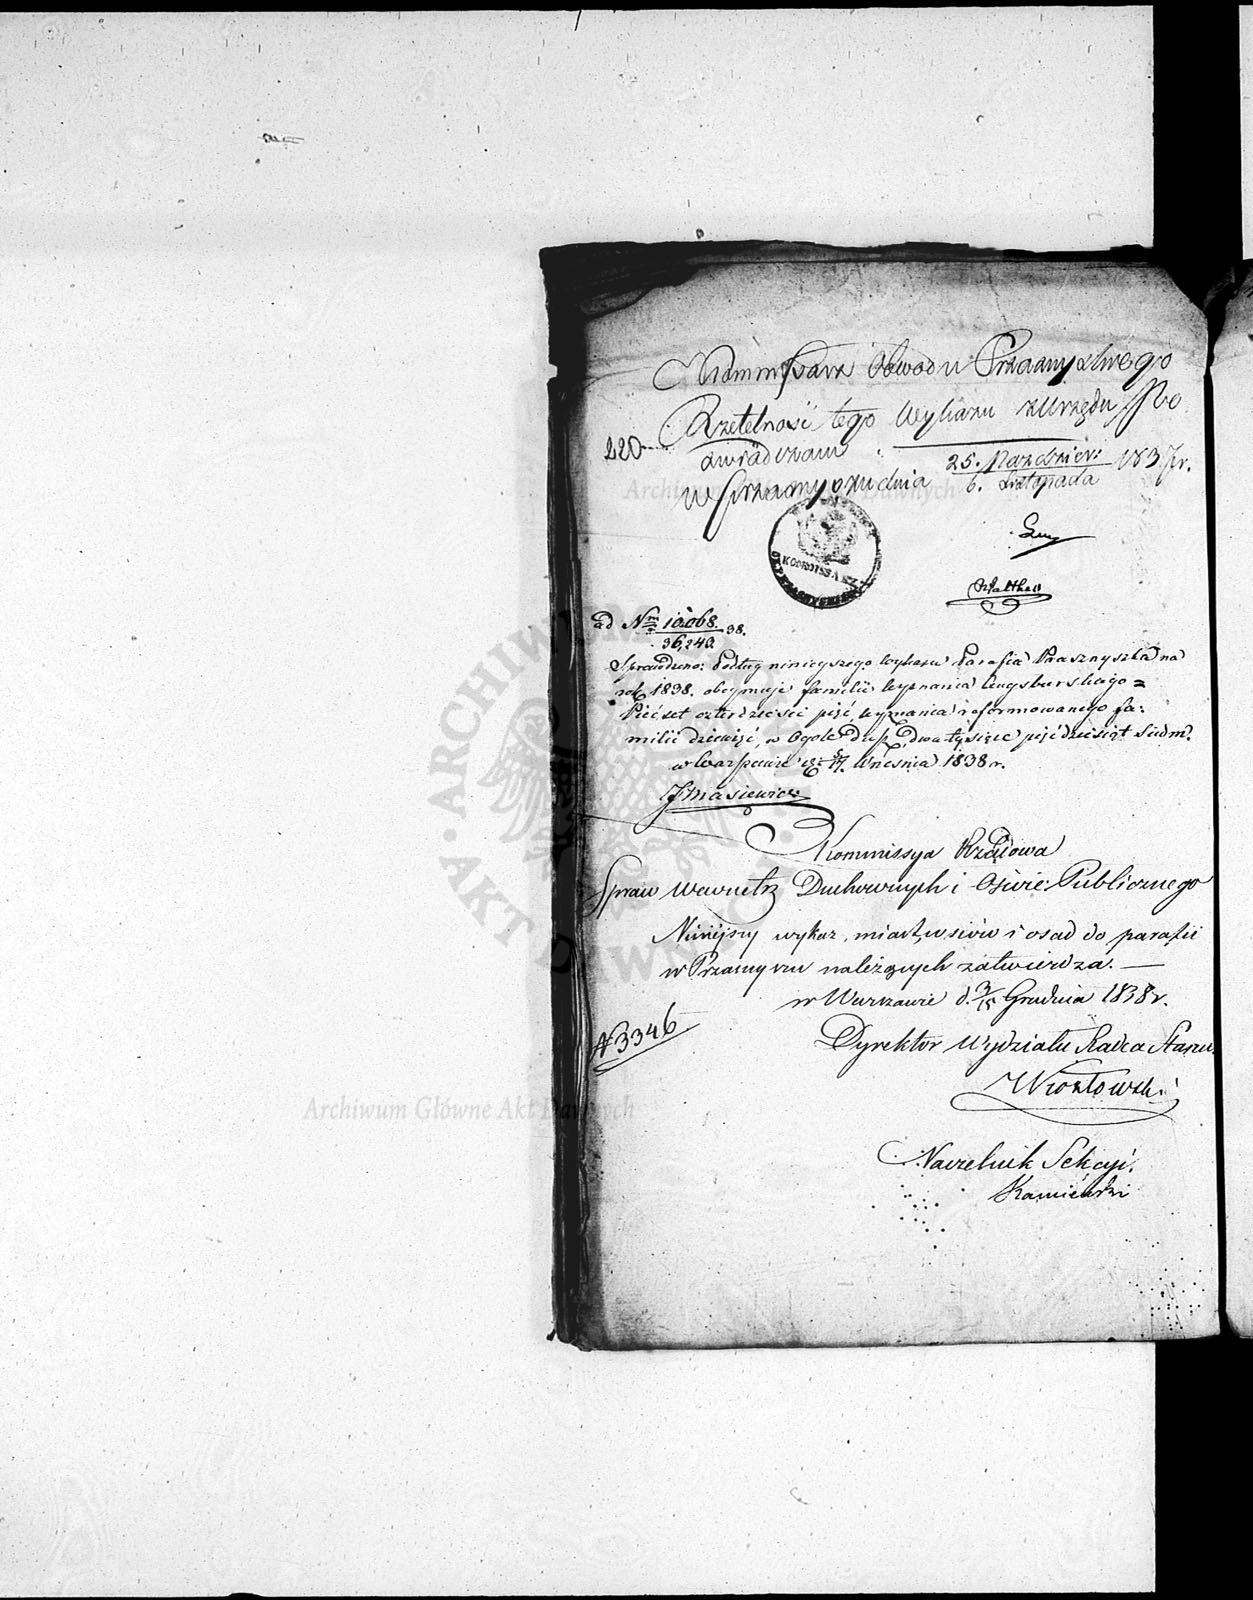 Kommissarz Obwodu Przasnyskiego
Rzetelność tego Wykazu z Urzędu
220
zaświadczam
w Przasnyszu dnia 25. Październi: / 6. Listopada 1837 r.
KOMMISSARZ
Walther
ad Nrm 10068. / 36,240. 38.
Sprawdzono: Podług niniejszego wykazu Parafia Prasznyszka na
rok 1838. obejmuje familii wyznania Augsburskiego =
Pięćset czterdzieści pięć, wyznania reformowanego fa:
milii dziewięć, w Ogóle dusz dwa tysiące pięćdziesiąt siedm.
w Warszawie d. 5/17. Września 1838 r.
Kommissya Rządowa
Spraw Wewnętrz Duchownych i Oświe: Publicznego
Niniejszy wykaz, miast, wsiów i osad do parafii
w Przasnyszu należących zatwierdza. —
w Warszawie d. 3/15 Grudnia 1838 r.
N 3346
Dyrektor Wydziału Radca Stanu
Kozłowski
Naczelnik Sekcyi.
Kamiński
ARCHIWUM GŁÓWNE AKT DAWNYCH
Archiwum Główne Akt Dawnych
Archiwum Główne Akt Dawnych